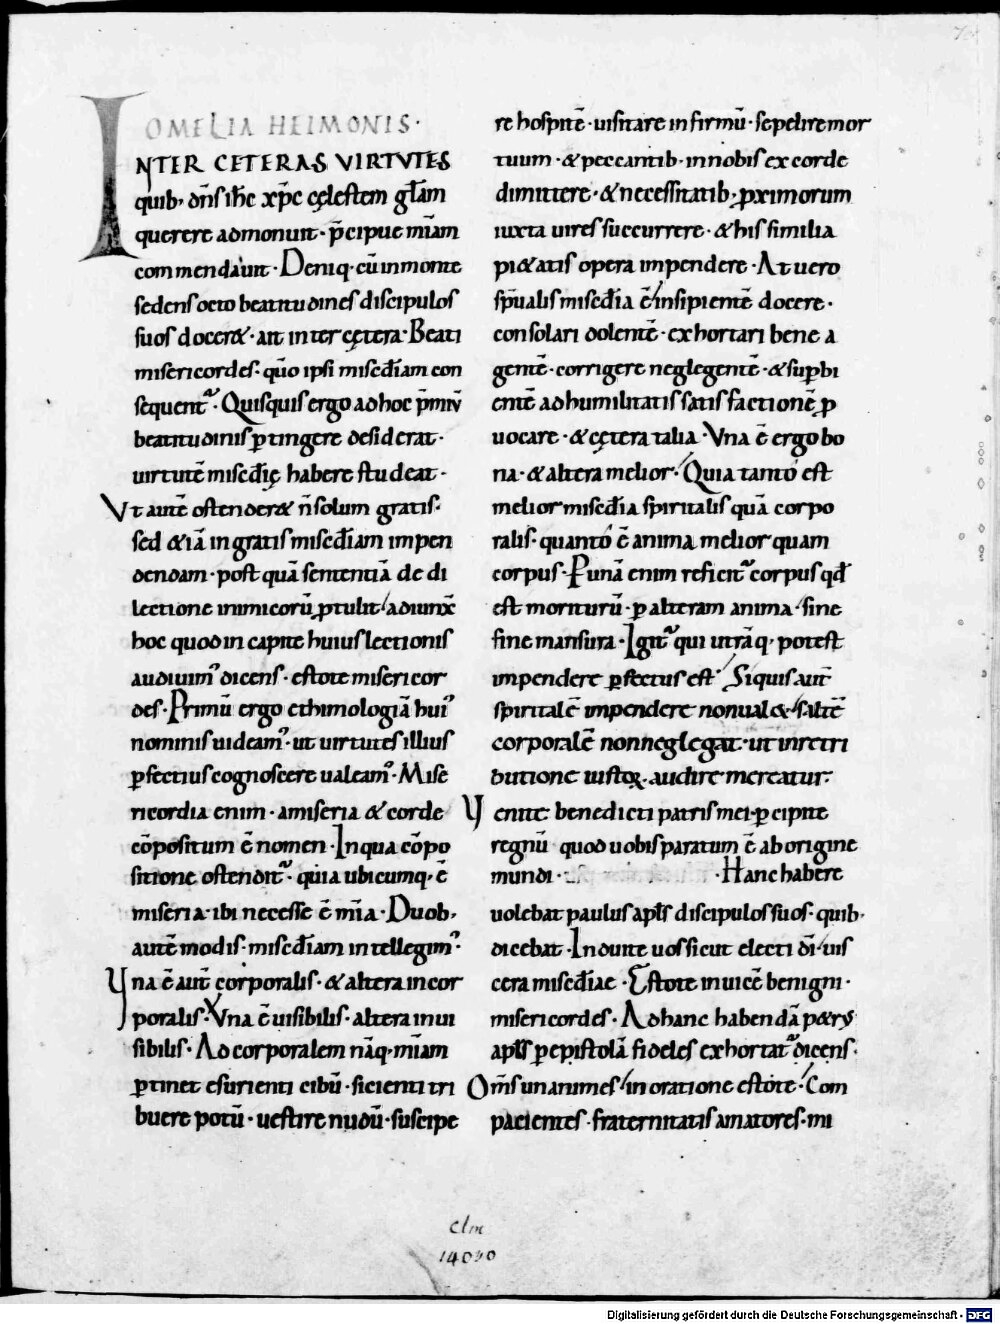 OMELIA HEIMONIS·
INTER CETERAS VIRTVTES
quib; dñs ih̅c xp̅c cęlestem gl̅am
querere admonuit· p̄cipue mīam
commendauit· Deniq· cū in monte
sedens octo beatitudines discipulos
suos doceret· ait inter cętera· Beati
misericordes· qūo ipsi miscd̅iam con
sequent᷑· Quisquis ergo ad hoc p̄miū
beatitudinis ꝑtingere desiderat·
uirtutē miscd̅ię habere studeat·
Vt autē ostenderet ñ solum gratis·
sed & iā ingratis miscd̅iam impen
dendam· post quā sententiā de di
lectione inimicorū ꝓtulit adiunx̅
hoc quod in capite huius lectionis
audiuimꝰ dicens· estote misericor
des· Primū ergo ethimologiā huiꝰ
nominis uideamꝰ· ut uirtutes illius
ꝑfectius cognoscere ualeamꝰ· Mise
ricordia enim· a miseria & corde
cōpositum ē nomen· In qua cōpo
sitione ostendit᷑· quia ubicumq; ē
miseria· ibi necesse ē mīa· Duob;
autē modis· miscd̅iam intellegimꝰ·
Vna ē aut̄ corporalis· & altera incor
poralis· Vna ē uisibilis· altera inui
sibilis· Ad corporalem nāq; mīam
ꝑtinet esurienti cibū· sicienti tri
buere potū· uestire nudū· suscipe
re hospitē· uisitare infirmū· sepelire mor
tuum· & peccantib; in nobis ex corde
dimittere· & necessitatib; ꝓximorum
iuxta uires succurrere· & his similia
pietatis opera impendere· At uero
sp̄ualis miscd̅ia ē insipientē docere·
consolari dolentē· exhortari bene a
gentē· corrigere neglegentē· & suꝑbi
entē ad humilitatis satisfactionē ꝓ
uocare· & cętera talia· Vna ē ergo bo
na· & altera melior· Quia tanto est
melior miscd̅ia spiritalis quā corpo
ralis· quanto ē anima melior quam
corpus· Ꝑ unā enim reficit᷑ corpus qd̅
est moriturū· ꝑ alteram anima sine
fine mansura· Igit᷑ qui utrāq; potest
impendere ꝑfectus est· Siquis aut̄
spiritalē impendere non ualet saltē
corporalē non neglegat· ut in retri
butione iustoꝝ audire mereatur·
Venite benedicti patris mei· ꝑcipite
regnū quod uobis paratum ē ab origine
mundi· Hanc habere
uolebat paulus apl̅s discipulos suos· quib;
dicebat· Induite uos sicut electi dī uis
cera miscd̅iae· Estote inuicē benigni·
misericordes· Ad hanc habendā petrus
apl̅s ꝑ epistolā fideles exhortat᷑ dicens·
Om̅s unanimes in oratione estote· Com
pacientes· fraternitatis amatores· mi
clm
14090
Digitalisierung gefördert durch die Deutsche Forschungsgemeinschaft - DFG